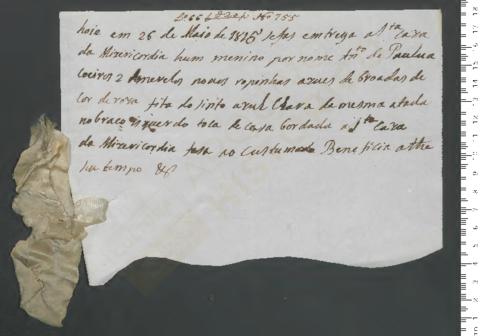 Nº 755
hoje em 26 de Maio de 1816 se fas entrega a Sta Caza
da Mizericordia hum menino por nome Antº de Paulua
coeiros 2 novos roupinhas azues de
cor de roza fita do sinto azul Chara da mesma atada
no braco isquerdo toca de casa bordada a Sta Caza
da Mizericordia fasa ao Custumado Beneficio athe
seu tempo &ª